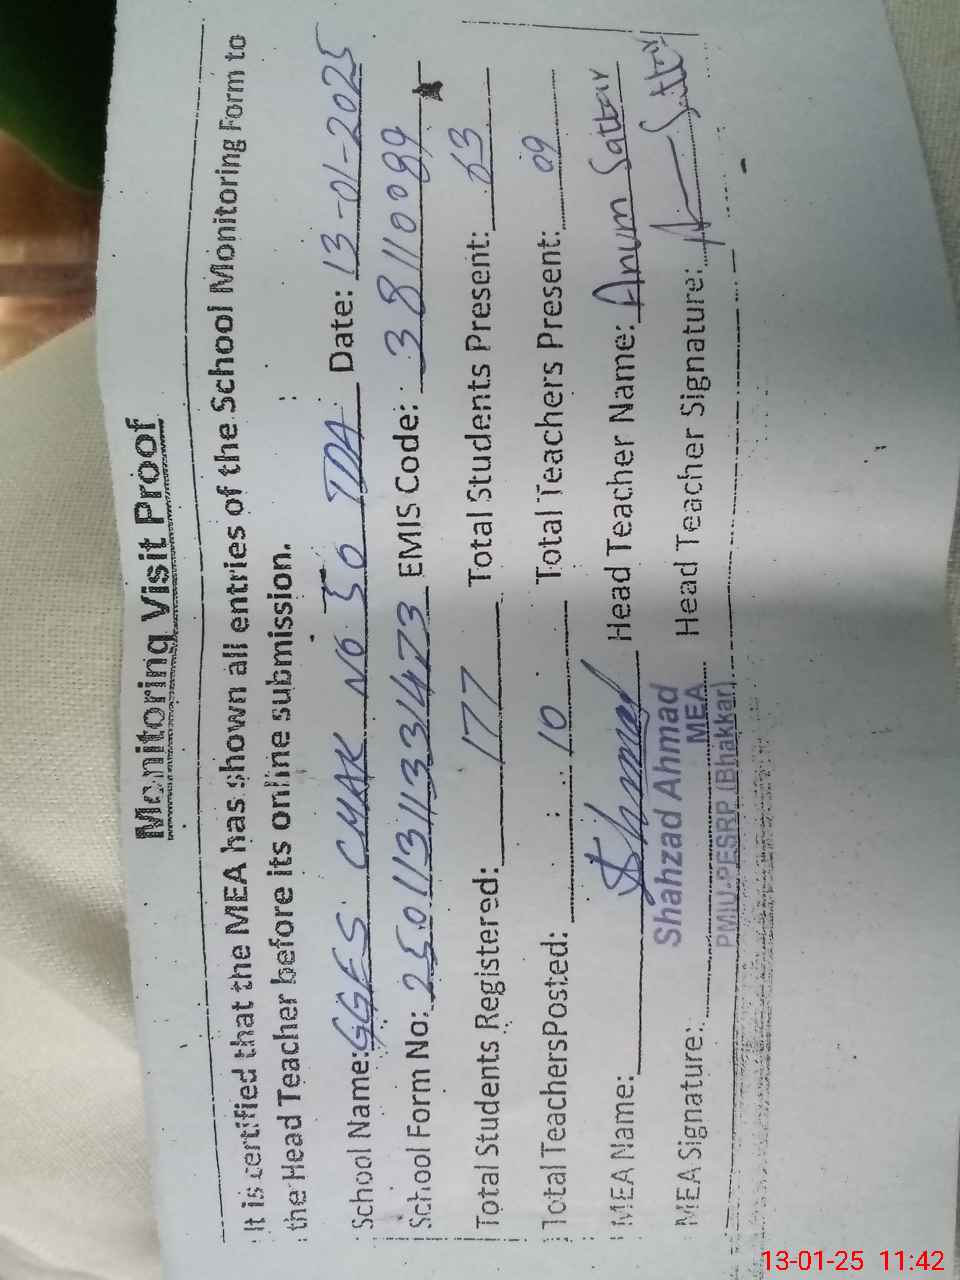 Monitoring Visit Proof
It is certified that the MEA has shown all entries of the School Monitoring Form to
the Head Teacher before its online submission.
School Name: GGES CHAK NO 50 TDA Date: 13-01-2025
School Form No: 25011311331473 EMIS Code: 38110099
Total Students Registered: 177 Total Students Present: 63
Total Teachers Posted: 10 Total Teachers Present: 09
MEA Name: Head Teacher Name: Anum Sattar
Shahzad Ahmad
MEA
PMIU-PESRP (Bhakkar)
MEA Signature: Head Teacher Signature: Sattar
13-01-25 11:42